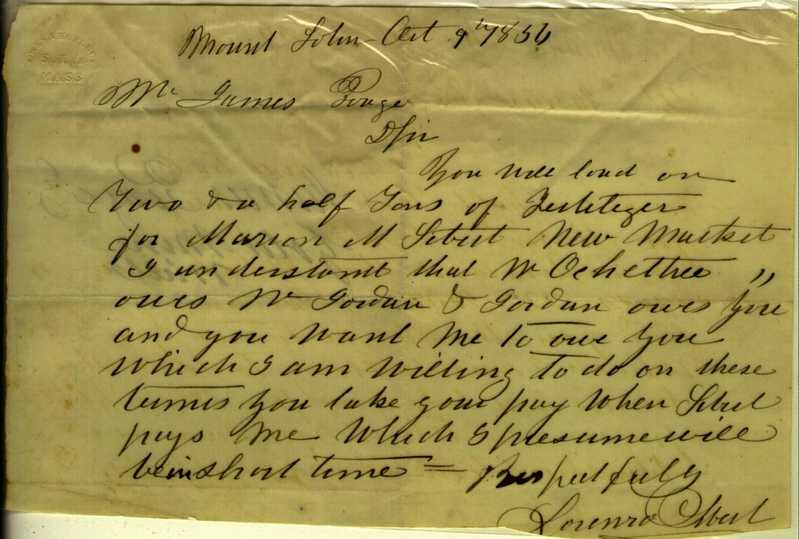 Mount Solon Oct 9th 1856
Mr James Poage
DSir
You will load on
Two & a half Tons of
for Marion M Sibert New Market
I understant that W Ochettree "
owes W Jordan & Jordan owes you
and you want me to owe you
which I am willing to do on these
turms you take your pay when Sibert
pays me which I presume will
be in short time = Respectfully
Lorenzo Sibert